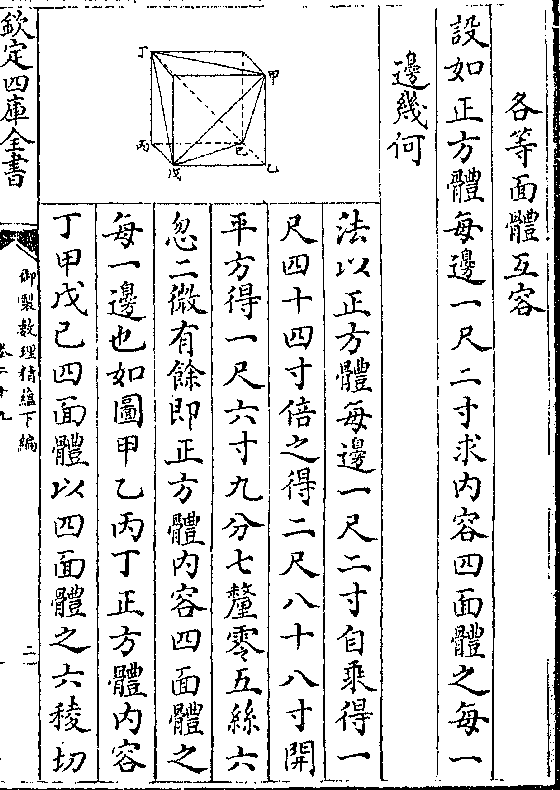 各等面體互容
設如正方體每邊一尺二寸求内容四面體之每一
邊幾何
法以正方體每邊一尺二寸自乘得一
尺四十四寸倍之得二尺八十八寸開
平方得一尺六寸九分七釐零五絲六
忽二微有餘即正方體内容四面體之
每一邊也如圖甲乙丙丁正方體内容
丁甲戊己四面體以四面體之六稜切
丁
甲
丙
己
戊
乙
欽定四庫全書
御製數理精蘊下編
卷二十九
二